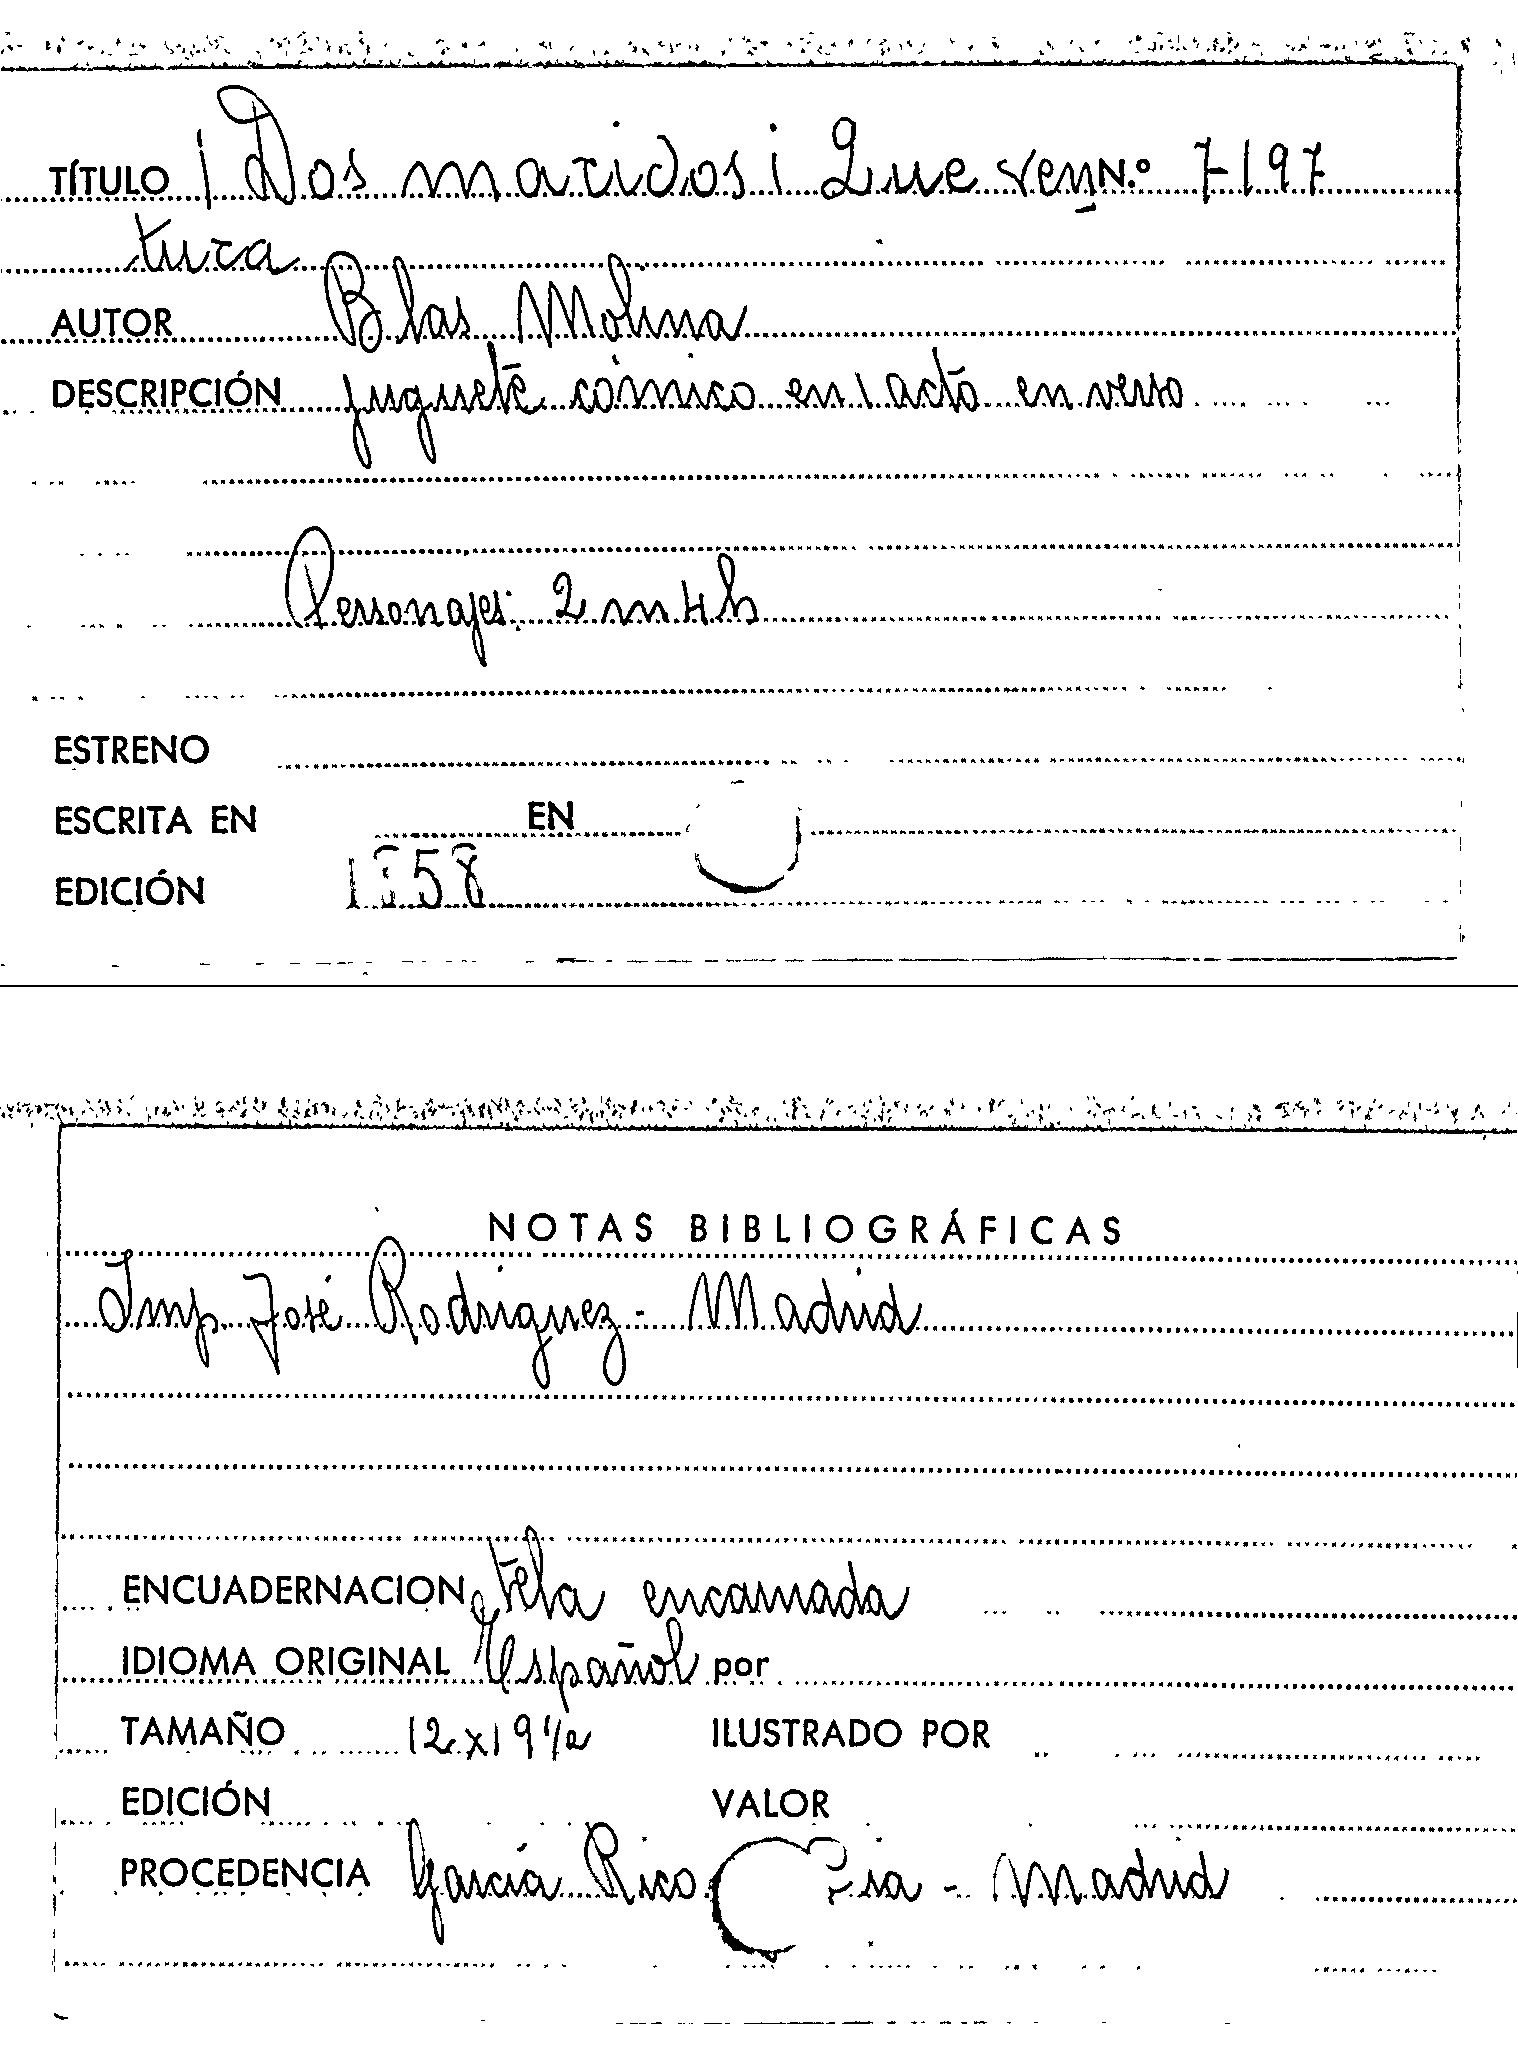 TÍTULO ¡Dos maridos! Que ven N.º 7197
tura
AUTOR Blas Molina
DESCRIPCIÓN juguete cómico en 1 acto en verso
Personajes: 2 m 4 h
ESTRENO
ESCRITA EN EN
EDICIÓN 1858
NOTAS BIBLIOGRÁFICAS
Imp. José Rodriguez - Madrid
ENCUADERNACION tela encarnada
IDIOMA ORIGINAL Español por
TAMAÑO 12 x 19 1/2 ILUSTRADO POR
EDICIÓN VALOR
PROCEDENCIA García Rico Cia - Madrid